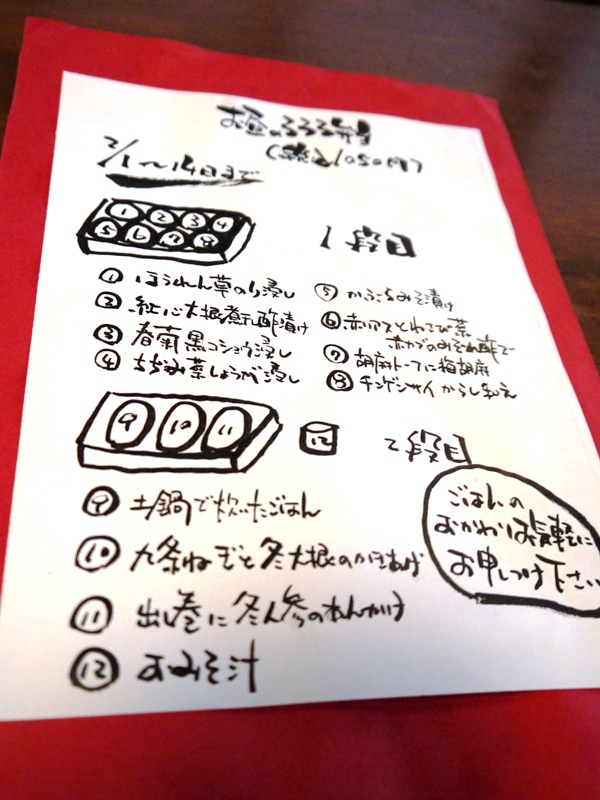 お昼のるるる弁当
(税込1050円)
2/1〜14日まで
① ② ③ ④
⑤ ⑥ ⑦ ⑧
1段目
① ほうれん草のり浸し
② 紅心大根煮 酢漬け
③ 春菊黒コショウ浸し
④ ちぢみ菜しょうが浸し
⑤ かぶらみそ漬け
⑥ とわさび菜
赤カブのみぞれ酢で
⑦ 胡麻トーフに梅胡麻
⑧ チンゲンサイからし和え
⑨ ⑩ ⑪ ⑫
2段目
⑨ 土鍋で炊いたごはん
⑩ 九条ねぎと冬大根のかきあげ
⑪ 出し巻に冬人参のあんかけ
⑫ おみそ汁
ごはんの
おかわりはお気軽に
お申しつけ下さい